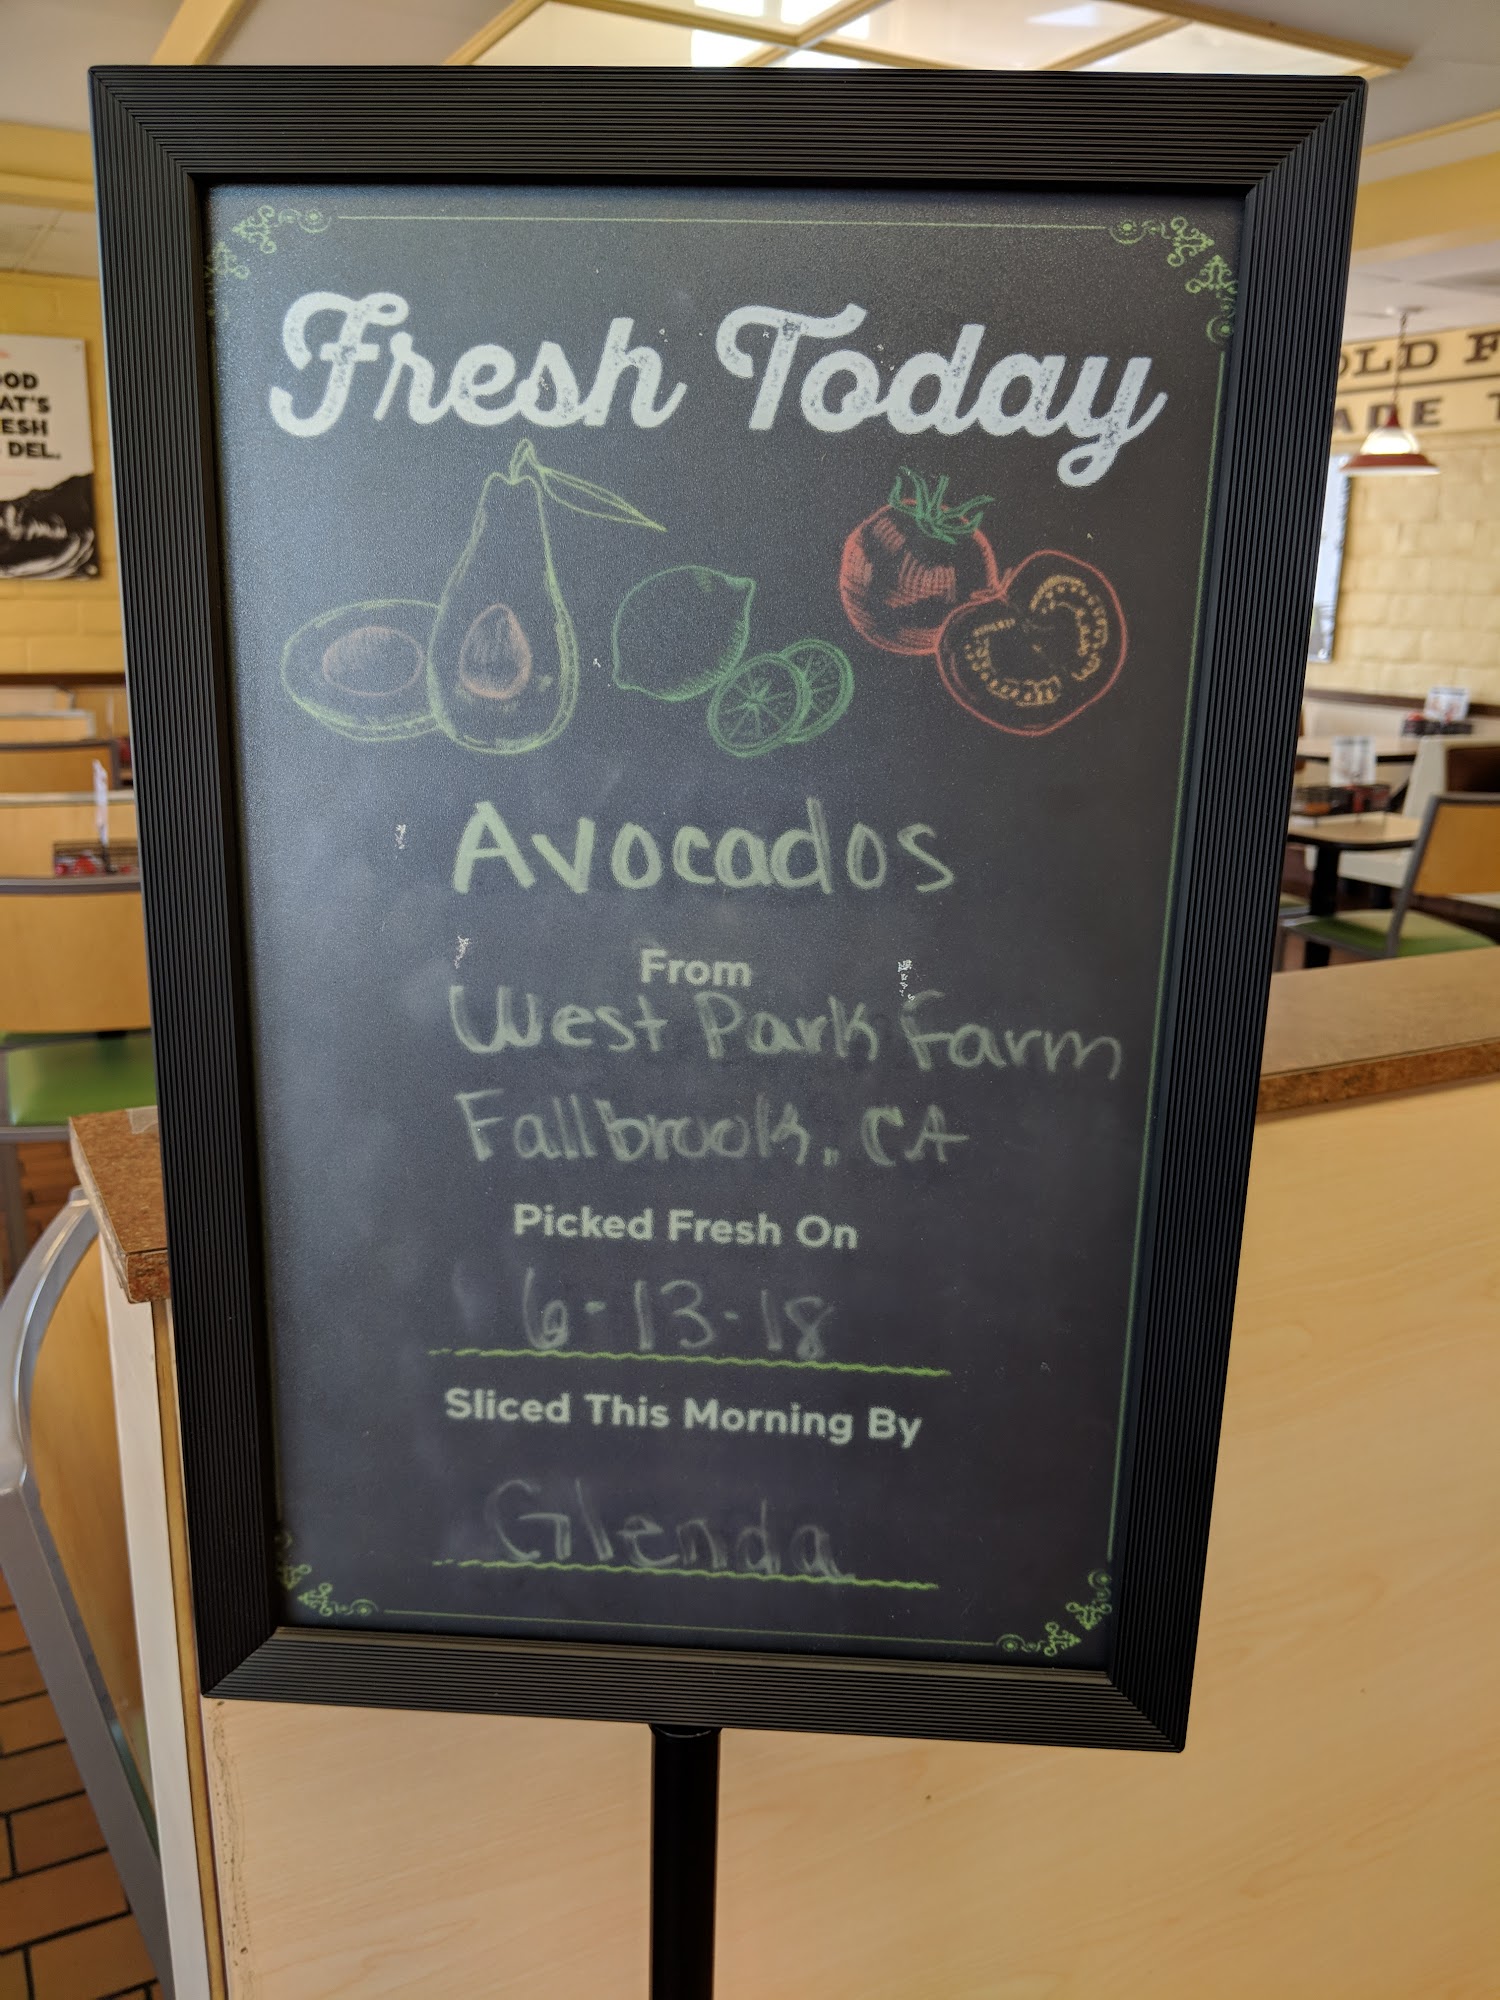 Fresh Today
Avocados
From
West Park Farm
Fallbrook, CA
Picked Fresh On
6-13-18
Sliced This Morning By
Glenda
OOD
AT'S
ESH
DEL.
OLD F
ADE T